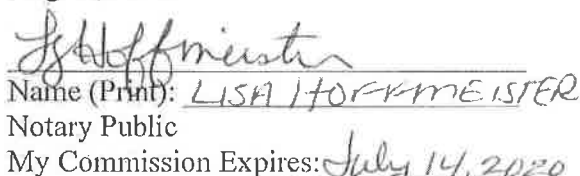 Lg Hoffmeister
Name (Print): LISA HOFFMEISTER
Notary Public
My Commission Expires: July 14, 2020